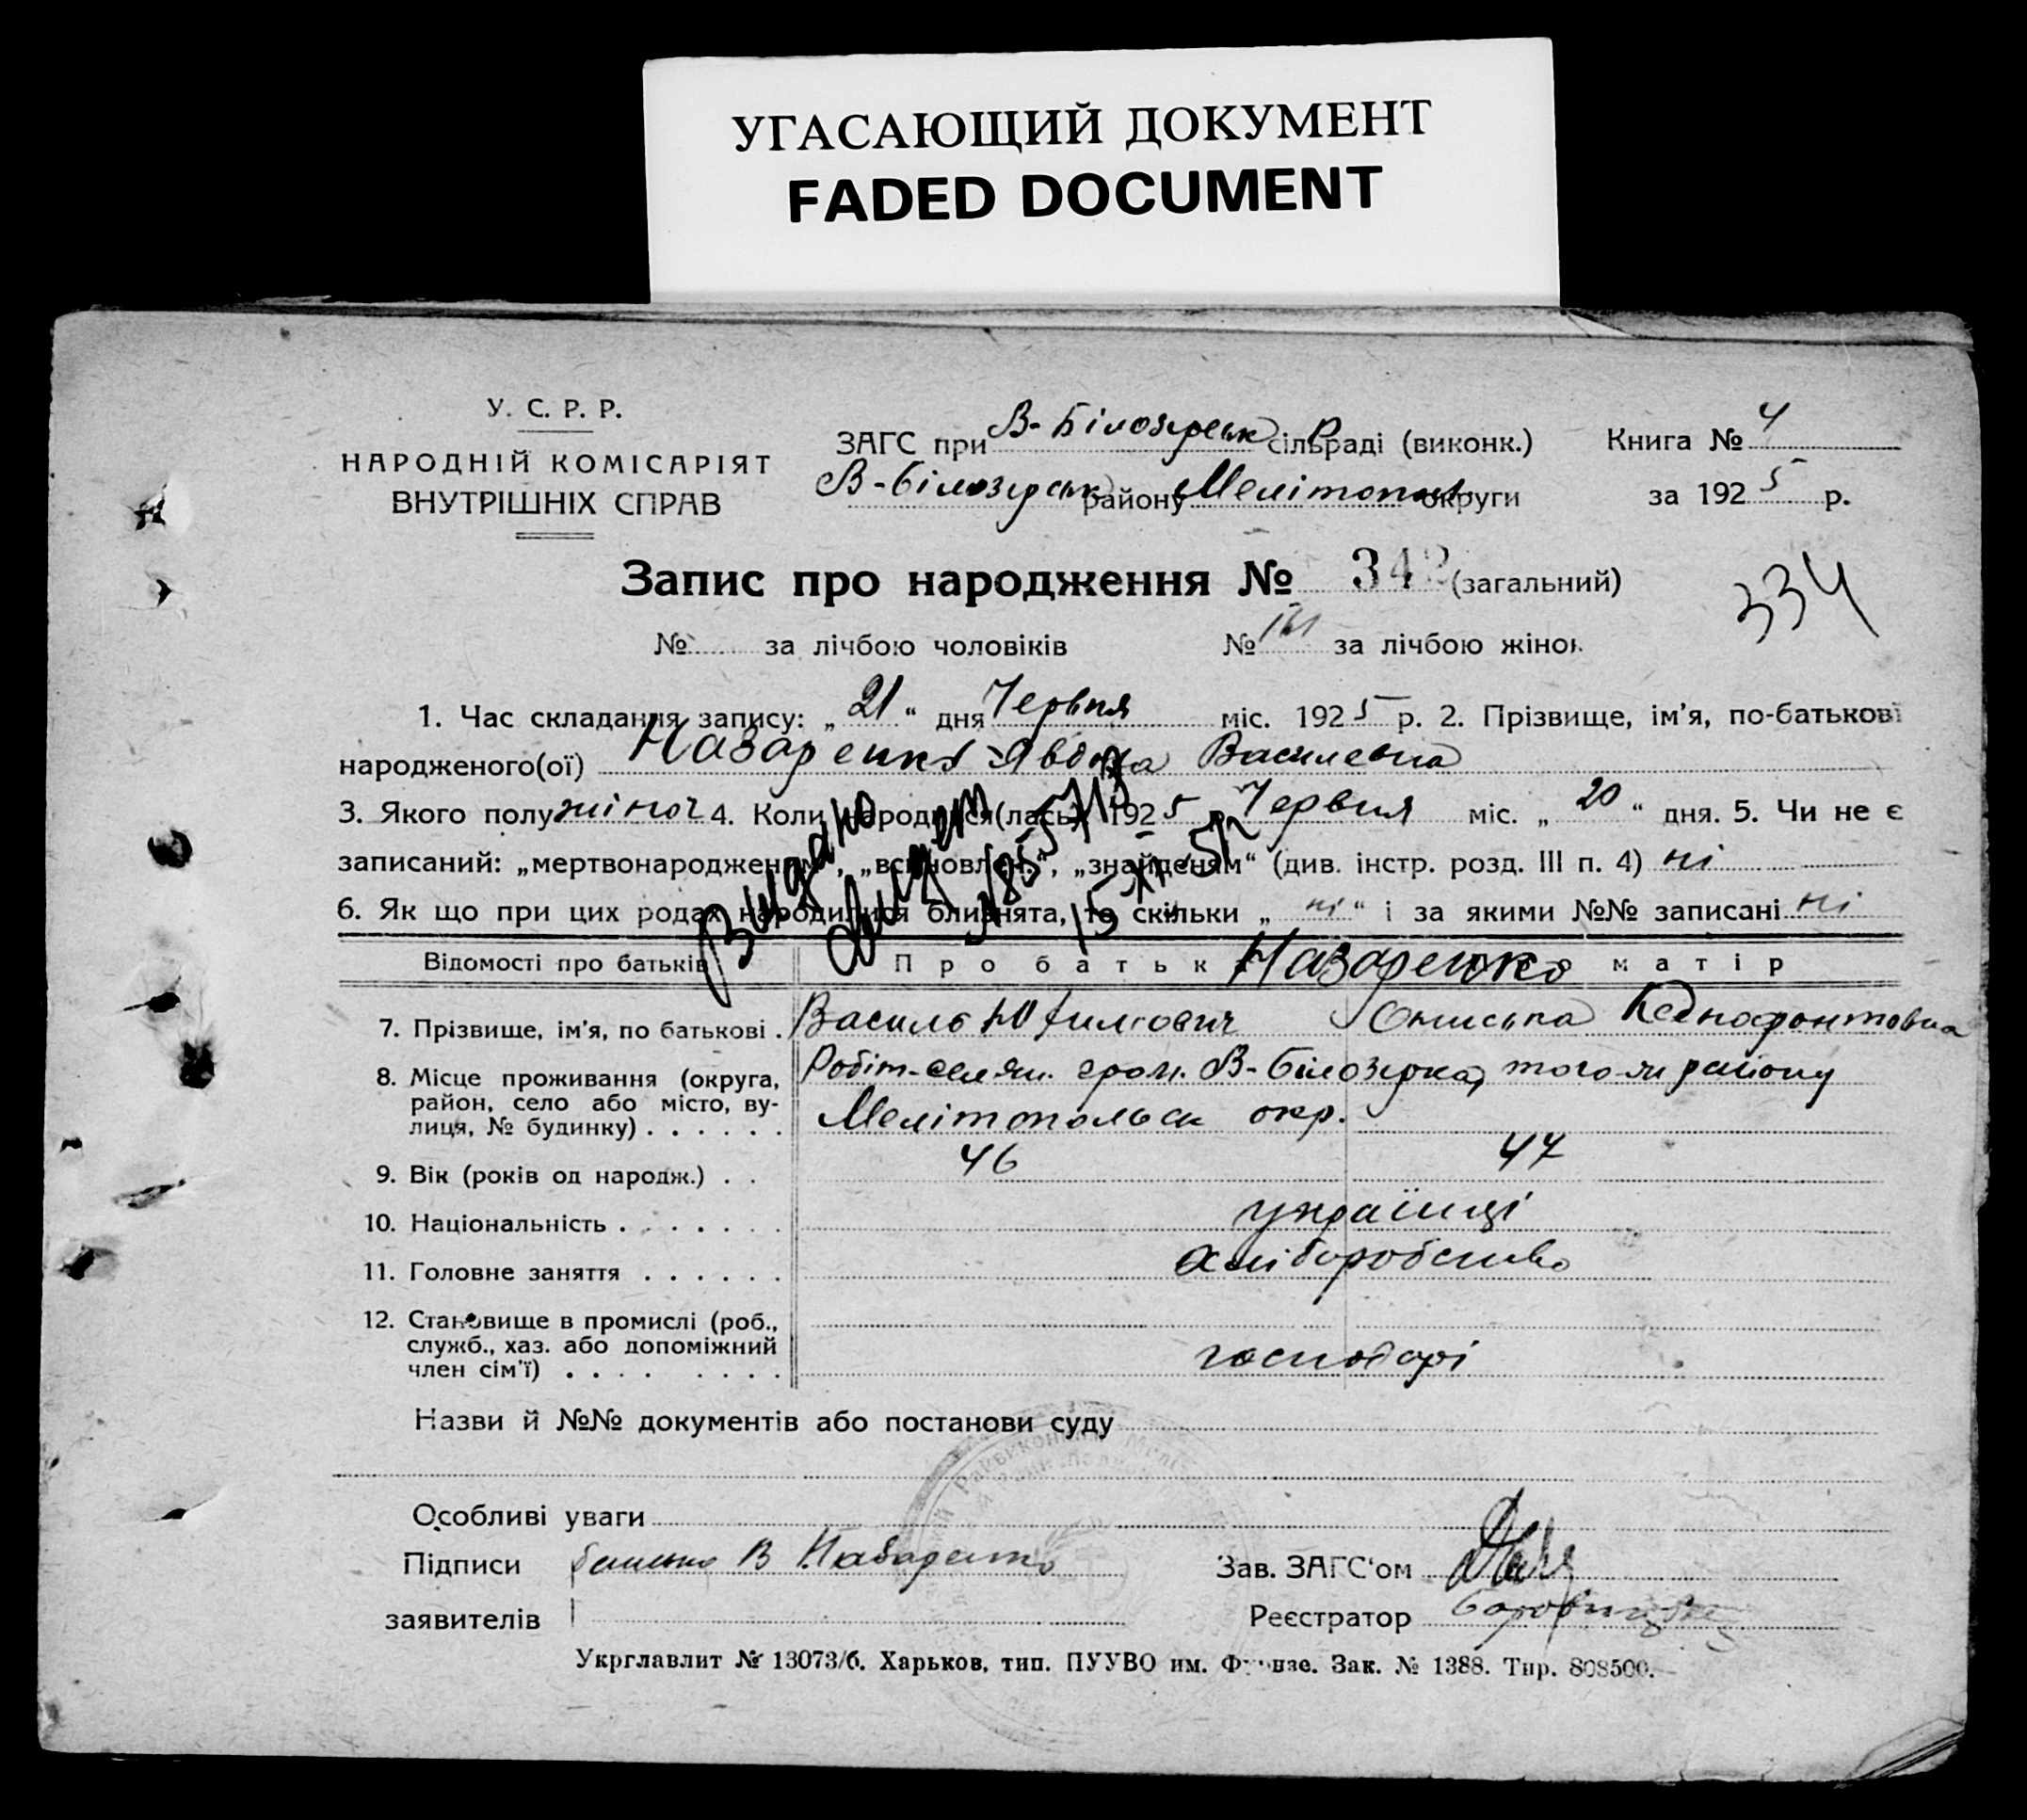 УГАСАЮЩИЙ ДОКУМЕНТ
FADED DOCUMENT
У. С. Р. Р.
НАРОДНІЙ КОМІСАРІЯТ
ВНУТРІШНІХ СПРАВ
ЗАГС при В-Білозірськ сільраді (виконк.)
В-Білозірськ району Мелітопол. округи
Книга № 4
за 1925 р.
Запис про народження № 342 (загальний)
334
№ за лічбою чоловіків № 161 за лічбою жінок
1. Час складання запису: „21“ дня Червня міс. 1925 р. 2. Прізвище, ім’я, по-батькові
народженого(ої) Назаренко Явдоха Василевна
3. Якого полу жіноч 4. Коли народився(лась) 1925 р. Червня міс. „20“ дня. 5. Чи не є
записаний: „мертвонародженим“, „всиновлен.“, „знайденям“ (див. інстр. розд. III п. 4) ні
6. Як що при цих родах народилися близнята, то скільки „ні“ і за якими №№ записані ні
Видано
Відомості про батьків
Про батька
Про матір
Назаренко
7. Прізвище, ім’я, по батькові . Василь Юхимович Ониська
8. Місце проживання (округа, район, село або місто, вулиця, № будинку) . . . . . . Робіт-селян. гром. В-Білозірка, того-ж району
Мелітопольськ окр.
9. Вік (років од народж.) . . 46 47
10. Національність . . . . . . українці
11. Головне заняття . . . . . . хліборобство
12. Становище в промислі (роб., служб., хаз. або допоміжний член сім’ї) . . . . . . . . господарі
Назви й №№ документів або постанови суду
Особливі уваги
Підписи заявителів батько В Назаренко
Зав. ЗАГС‘ом
Реєстратор
Укрглавлит № 13073/б. Харьков, тип. ПУУВО им. Фрунзе. Зак. № 1388. Тир. 808500.